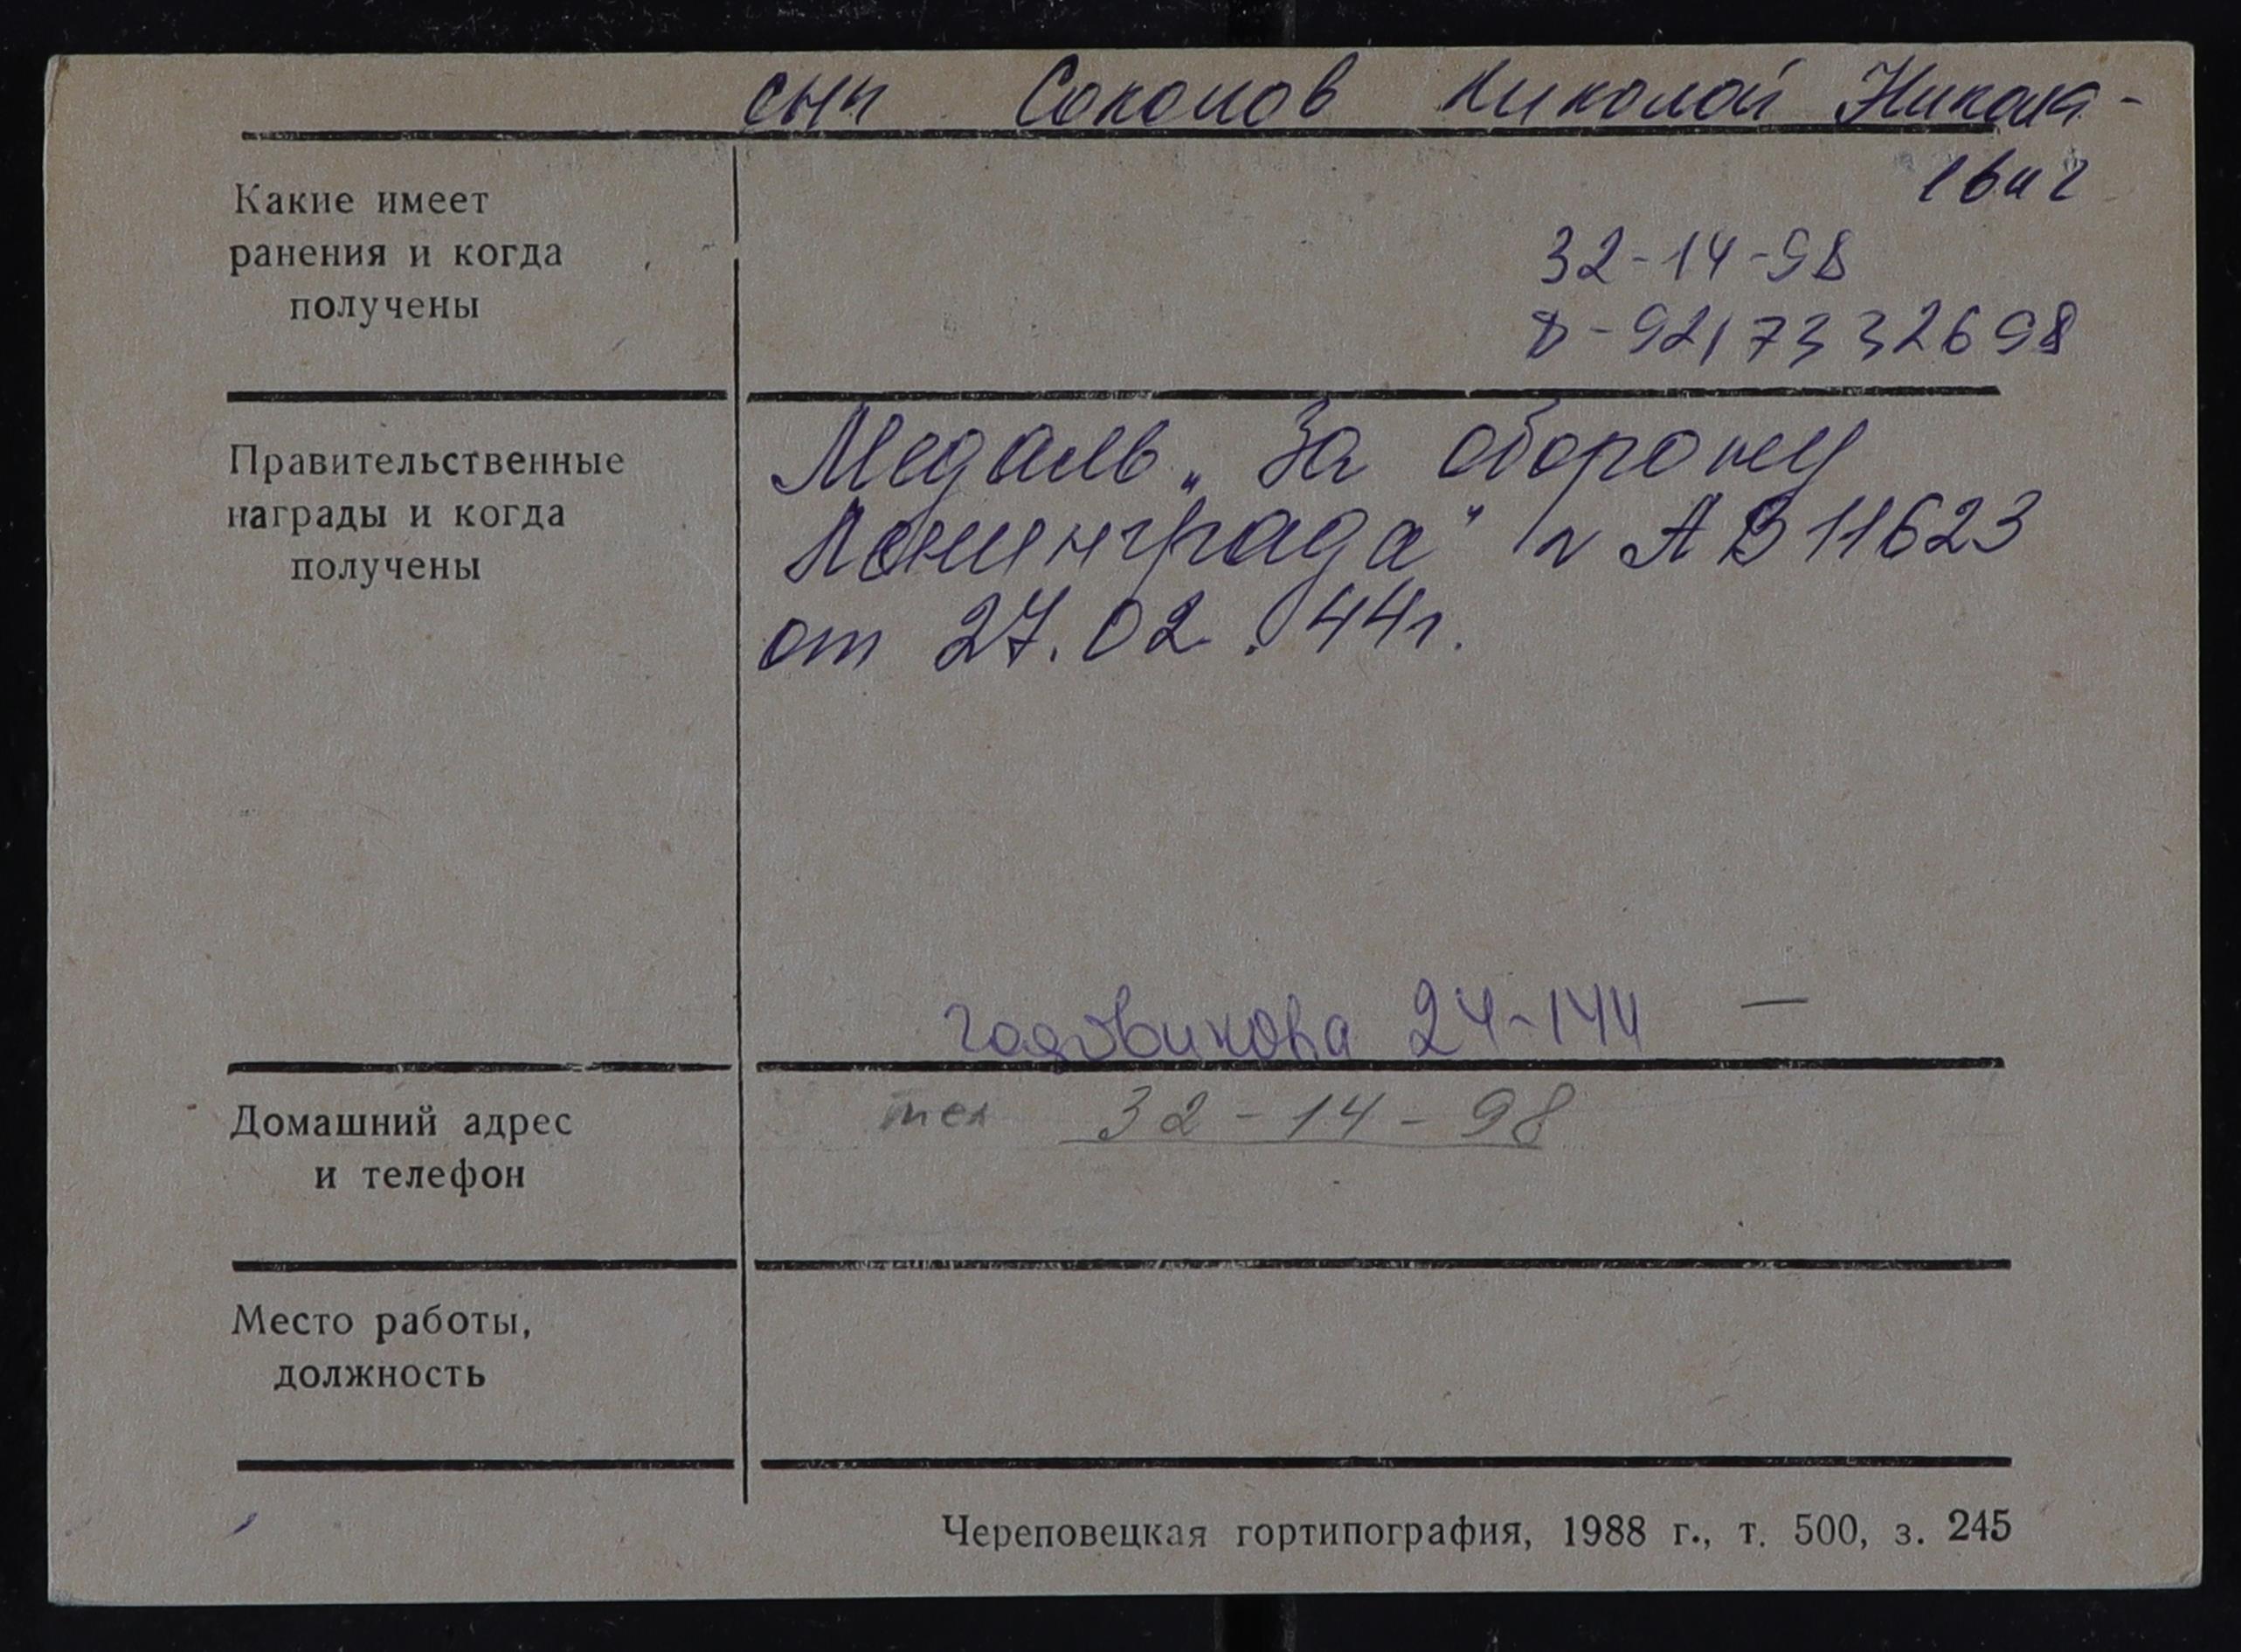 сын Соколов Николай Никола-
евич
Какие имеет
ранения и когда
получены
32-14-98
8-9217332698
Правительственные
награды и когда
получены
Медаль „За оборону
Ленинграда" N АВ11623
от 27.02.44г.
Годовикова 24-144 —
Домашний адрес
и телефон
тел 32-14-98
Место работы,
должность
Череповецкая гортипография, 1988 г., т. 500, з. 245